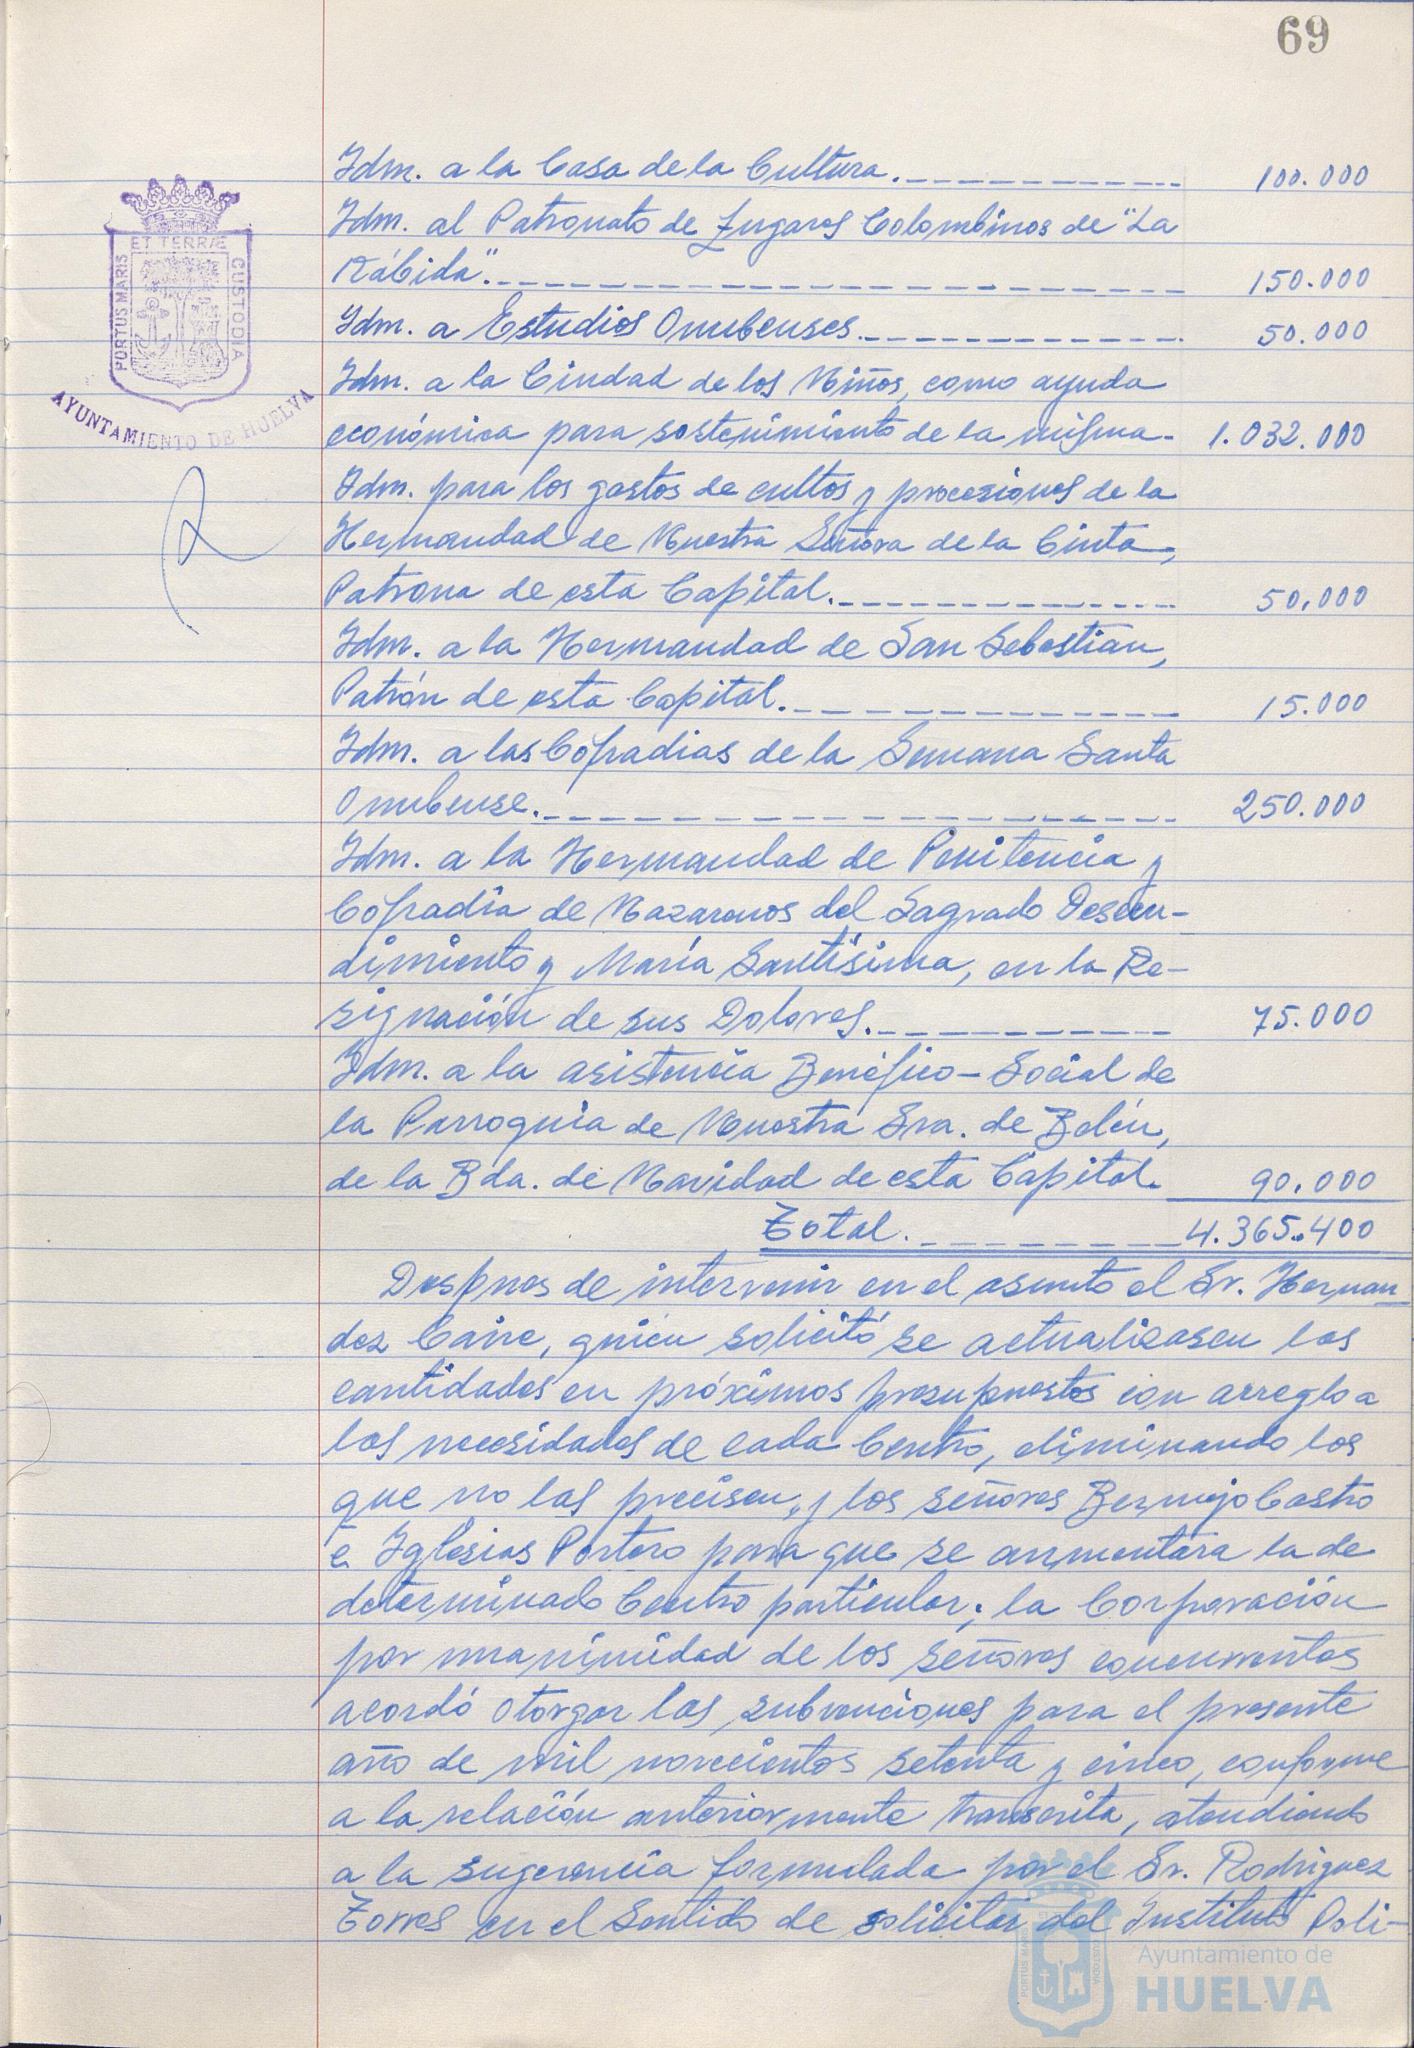 69
Idm. a la Casa de la Cultura. 100.000
Idm. al Patronato de Lugares Colombinos de "La
Rábida". 150.000
Idm. a Estudios Onubenses. 50.000
Idm. a la Ciudad de los Niños, como ayuda
económica para sostenimiento de la misma. 1.032.000
Idm. para los gastos de cultos y procesiones de la
Hermandad de Nuestra Señora de la Cinta,
Patrona de esta Capital. 50.000
Idm. a la Hermandad de San Sebastian,
Patrón de esta Capital. 15.000
Idm. a las Cofradias de la Semana Santa
Onubense. 250.000
Idm. a la Hermandad de Penitencia y
Cofradía de Nazarenos del Sagrado Descen-
dimiento y María Santísima, en la Re-
signación de sus Dolores. 75.000
Idm. a la asistencia Benéfico-Social de
la Parroquia de Nuestra Sra. de Belén,
de la Bda. de Navidad de esta Capital. 90.000
Total. 4.365.400
Despues de intervenir en el asunto el Sr. Hernan-
dez Caire, quien solicitó se actualizasen las
cantidades en próximos presupuestos con arreglo a
las necesidades de cada Centro, eliminando los
que no las precisen, y los señores Bermejo Castro
e Iglesias Portero para que se aumentara la de
determinado Centro particular; la Corporación
por unanimidad de los señores concurrentes
acordó otorgar las subvenciones para el presente
año de mil novecientos setenta y cinco, conforme
a la relación anteriormente transcrita, atendiendo
a la sugerencia formulada por el Sr. Rodriguez
Torres en el sentido de solicitar del Instituto Poli-
PORTUS MARIS ET TERRÆ CUSTODIA
AYUNTAMIENTO DE HUELVA
Ayuntamiento de
HUELVA